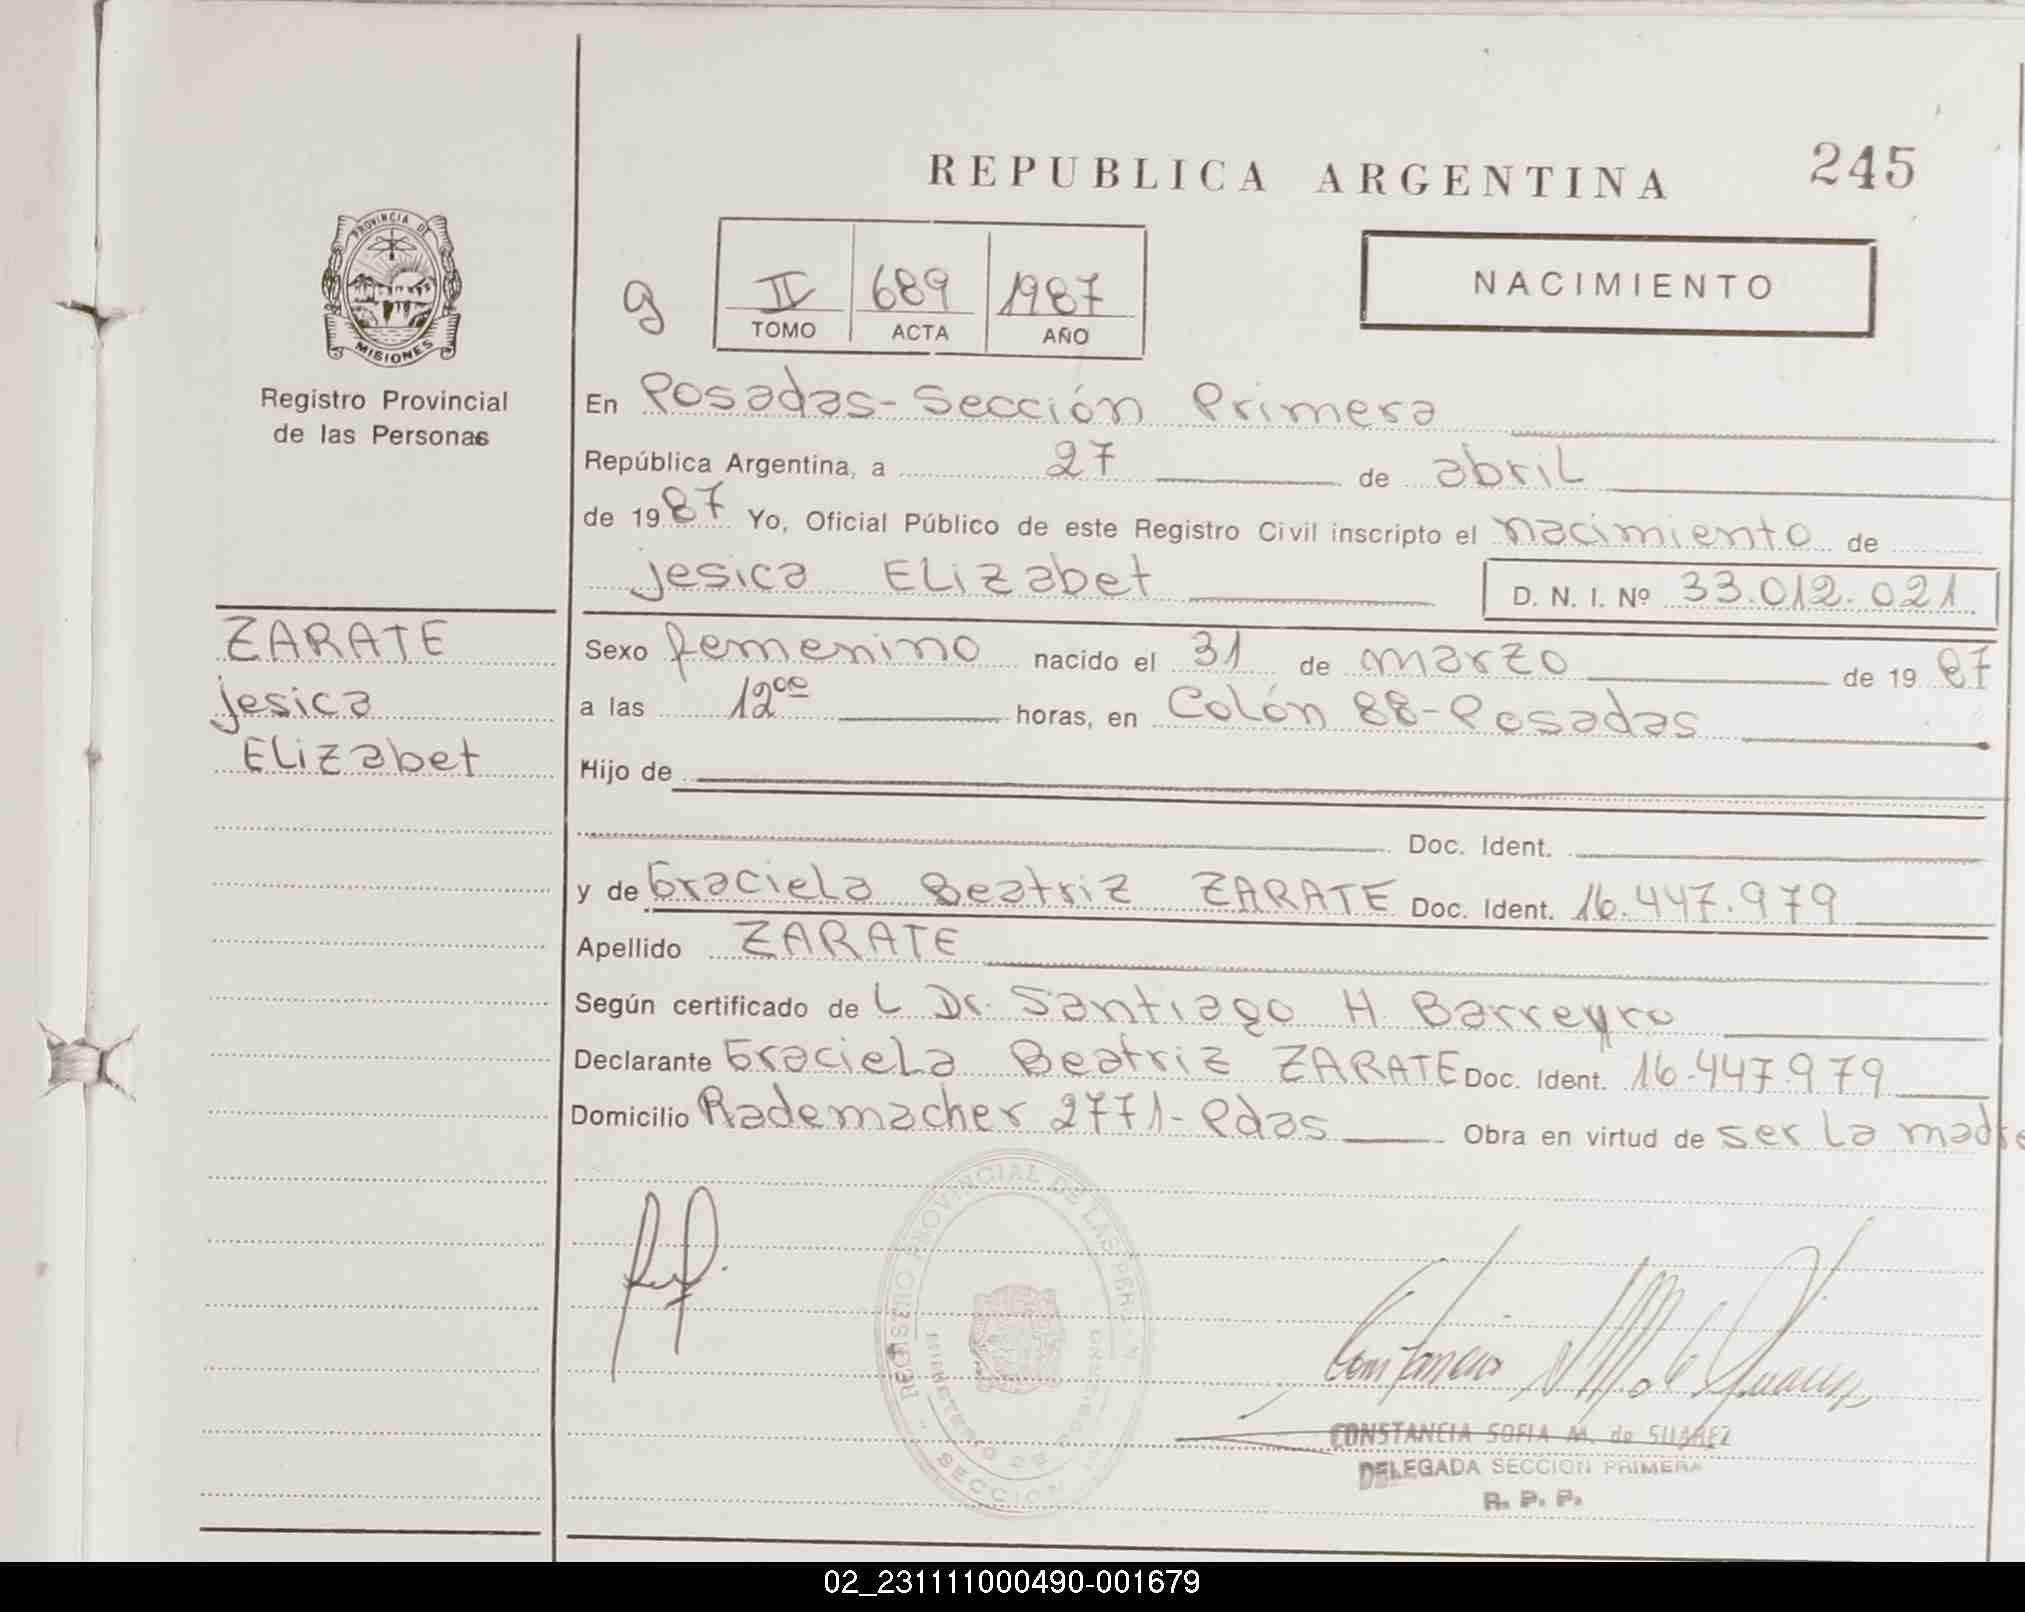 REPUBLICA ARGENTINA 245
PROVINCIA DE
MISIONES
Registro Provincial
de las Personas
g
II 689 1987
TOMO ACTA AÑO
NACIMIENTO
En Posadas-Sección Primera
República Argentina, a 27 de abril
de 1987 Yo, Oficial Público de este Registro Civil inscripto el nacimiento de
Jesica Elizabet D. N. I. Nº 33.012.021
ZARATE
Jesica
Elizabet
Sexo femenino nacido el 31 de marzo de 1987
a las 12oo horas, en Colón 88-Posadas
Hijo de
Doc. Ident.
y de Graciela Beatriz ZARATE Doc. Ident. 16.447.979
Apellido ZARATE
Según certificado de L Dr. Santiago H. Barreyro
Declarante Graciela Beatriz ZARATE Doc. Ident. 16.447.979
Domicilio Rademacher 2771-Pdas Obra en virtud de ser la madre
REGISTRO PROVINCIAL DE LAS
MINISTERIO DE
SECCION
CONSTANCIA SOFIA M. de SUAREZ
DELEGADA SECCION PRIMERA
R. P. P.
02_231111000490-001679